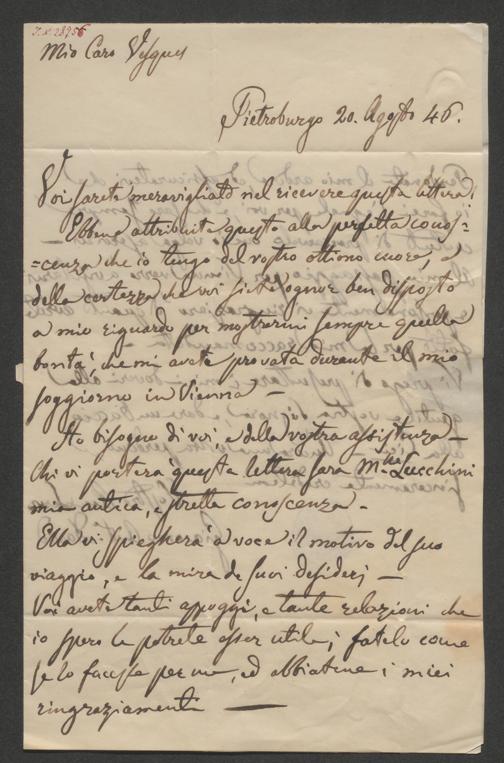 I.N. 28956
Mio Caro Vesques
Pietroburgo 20. Agosto 46.
Voi sarete meravigliato nel ricevere questa lettera!
Ebbene attribuite questo alla perfetta conos=
=cenza che io tengo del vostro ottimo cuore, e
della certezza che voi siete ognor ben disposto
a mio riguardo per mostrarmi sempre quella
bontà, che mi avete provata durante il mio
soggiorno in Vienna —
Ho bisogno di voi, e della vostra assistenza —
Chi vi porterà questa lettera sarà Lucchini
mia antica, e stretta conoscenza —
Ella vi spiegherà a voce il motivo del suo
viaggio, e la mira de suoi desiderj —
Voi avete tanti appoggi, e tante relazioni che
io spero le potrete esser utile; fatelo come
se lo faceste per me, ed abbiatene i miei
ringraziamenti —